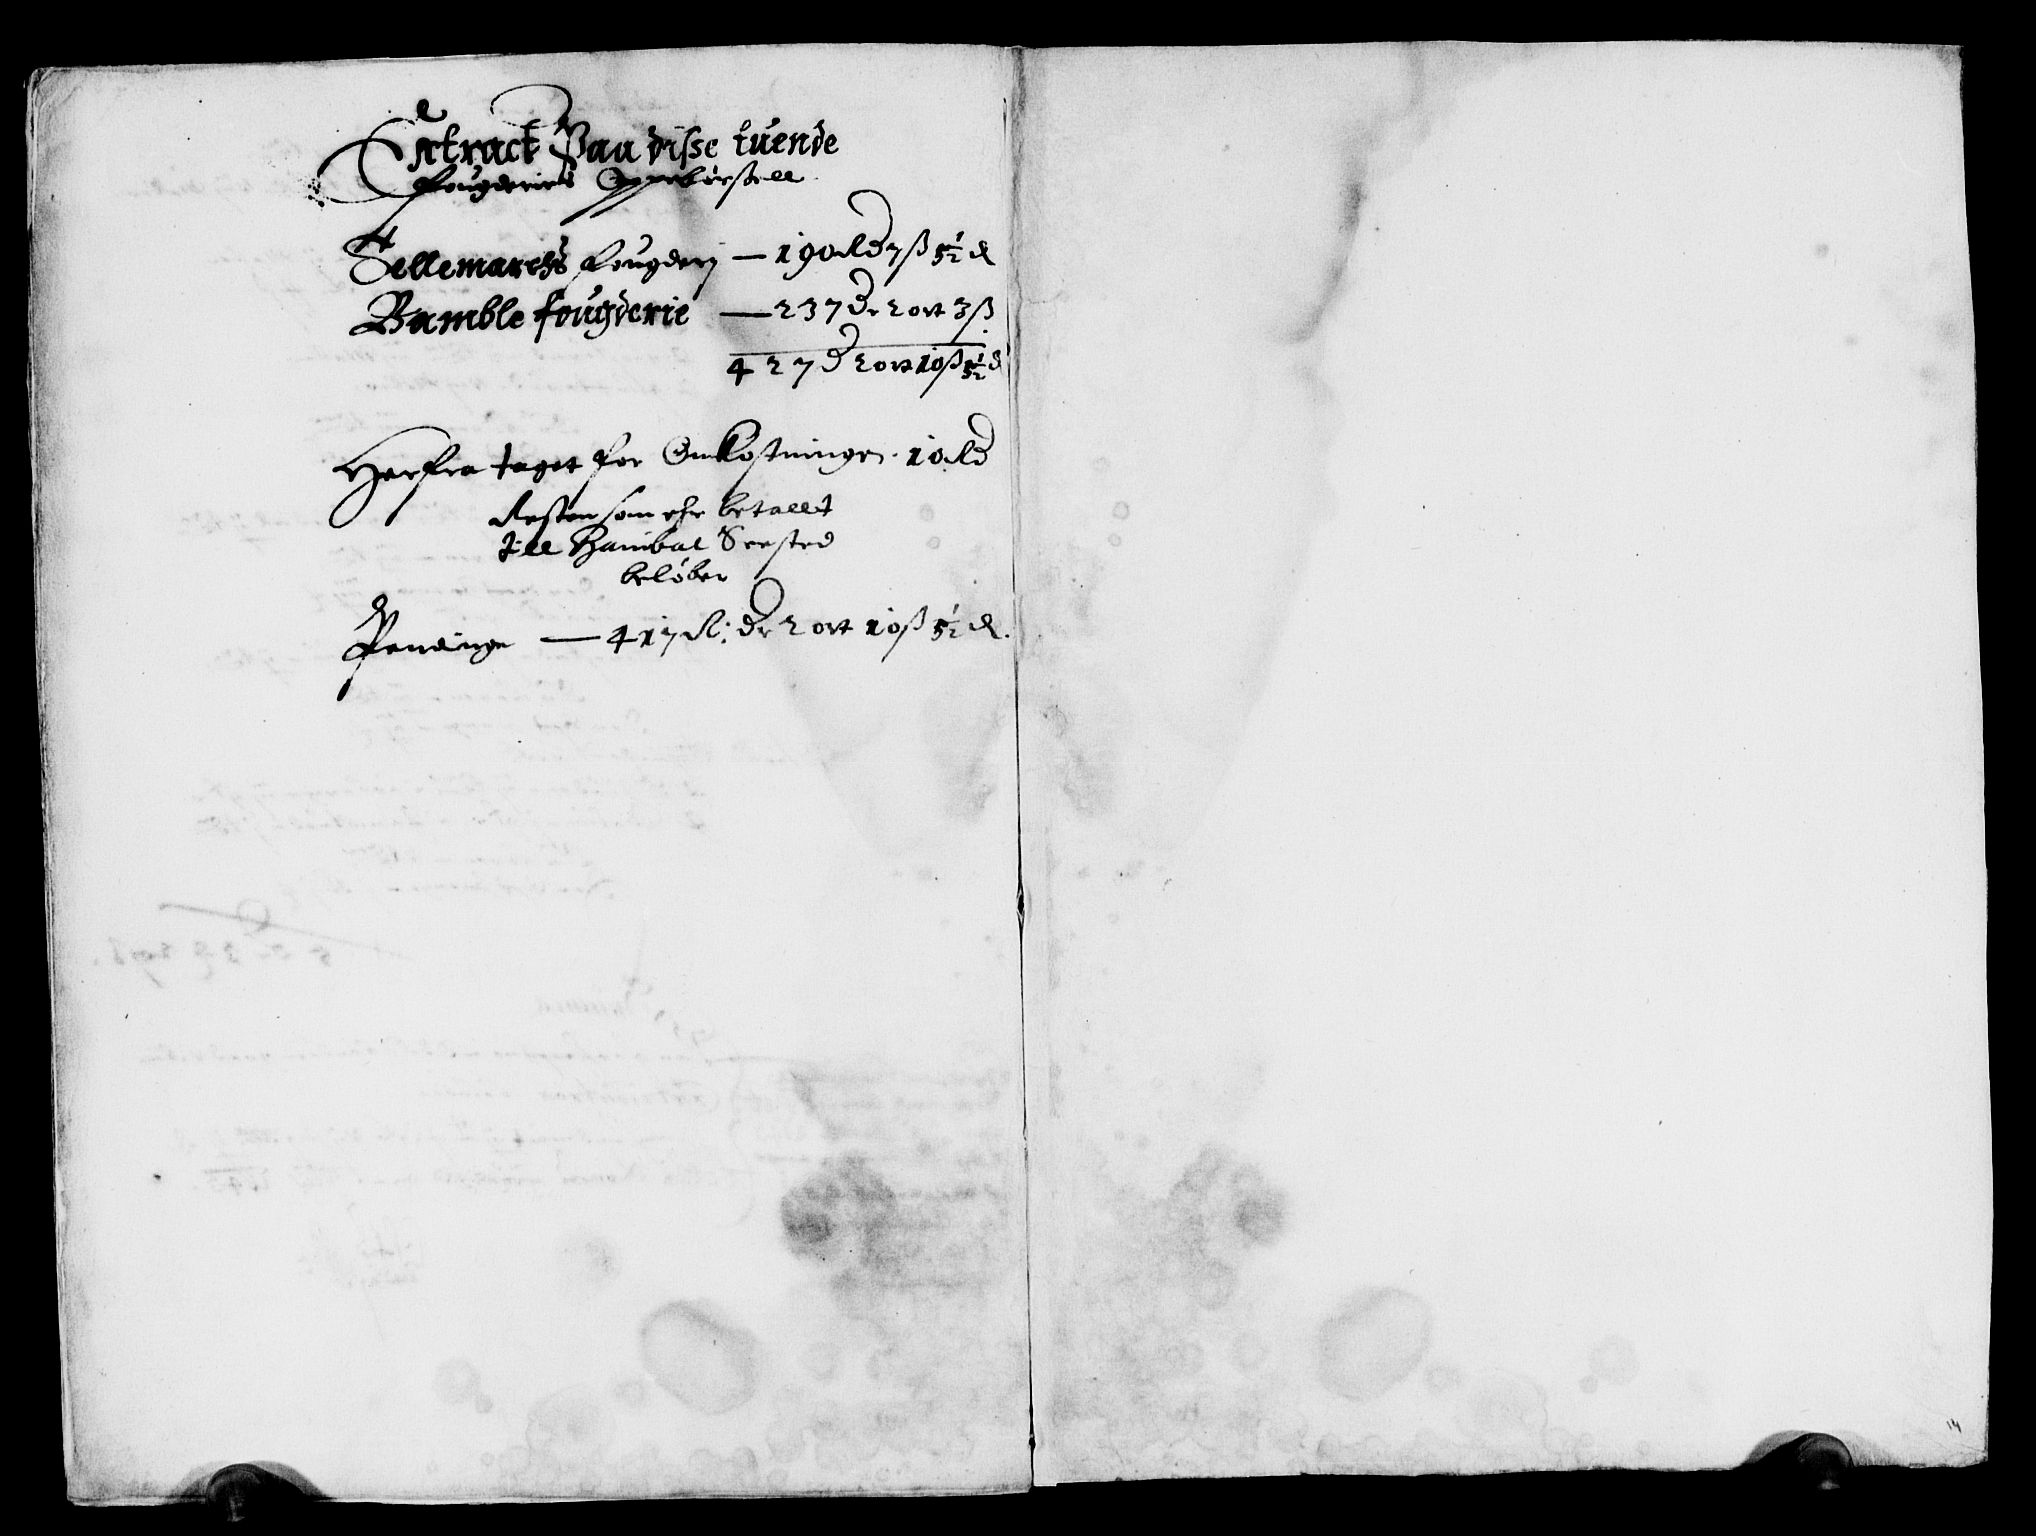 Extract Paa disse tuende
fougderies Oppebørsell
Tellemarchs fougderj — 190 Rd 7 ß 5½ d
Bamble fougderie — 237 dr 2 ort 3 ß
427 d 2 ort 10 ß 5½ d
Herfra taget for Omkostninger. 10 Rd
Resten som ehr betallt
till Hanibal Seested
beløber
Pendinge — 417 R: dr 2 ort 10 ß 5½ d.
14